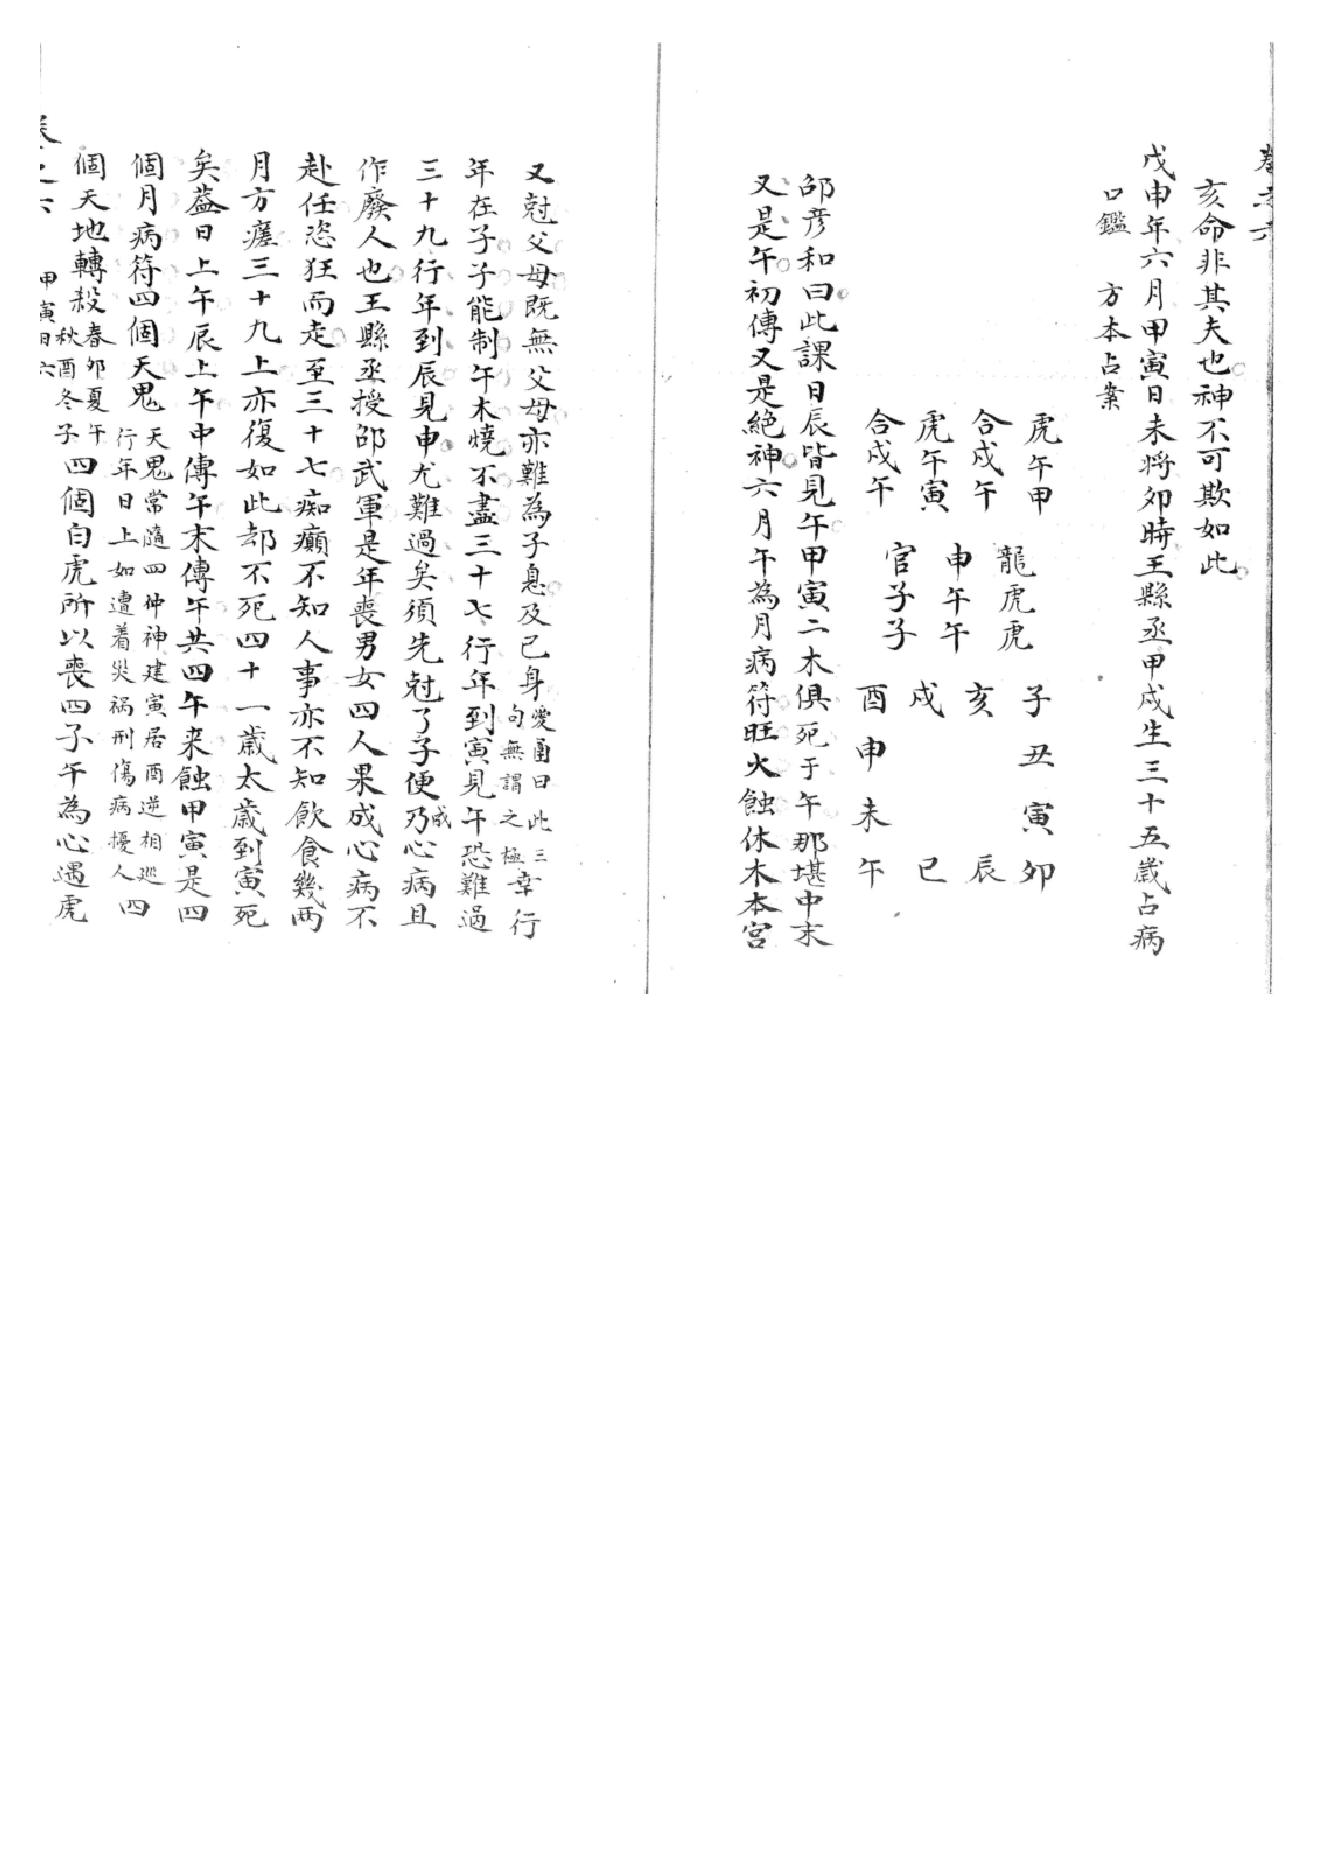 卷之六
亥命非其夫也神不可欺如此
戊申年六月甲寅日未將夘時王縣丞甲戌生三十五歲占病
口鑑 方本占業
虎午甲 龍虎虎 子丑寅卯
合戌午 申午午 亥 辰
虎午寅 官子子 戌 巳
合戌午 酉申未午
邵彦和曰此課日辰皆見午甲寅二木俱死于午那堪中末
又是午初傳又是絕神六月午為月病符旺火蝕休木本宮
又尅父母既無父母亦難為子息及已身愛函曰此三句無謂之極幸行
年在子子能制午木燒不盡三十七行年到寅見午恐難過
三十九行年到辰見申尤難過矣須先尅了子便乃成心病且
作廢人也王縣丞授邵武軍是年喪男女四人果成心病不
赴任恣狂而走至三十七痴癲不知人事亦不知飲食幾兩
月方瘥三十九上亦復如此却不死四十一歲太歲到寅死
矣蓋日上午辰上午中傳午末傳午共四午来蝕甲寅是四
個月病符四個天鬼天鬼常隨四仲神建寅居酉逆相巡行年日上如遭着災祸刑傷病擾人四
個天地轉殺春夘夏午秋酉冬子四個白虎所以喪四子午為心遇虎
卷之六 甲寅日六